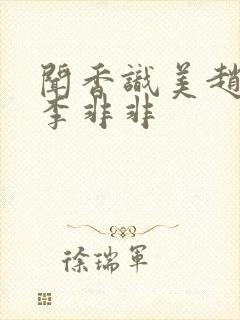 聞香識美趙
李非非
徐瑞軍